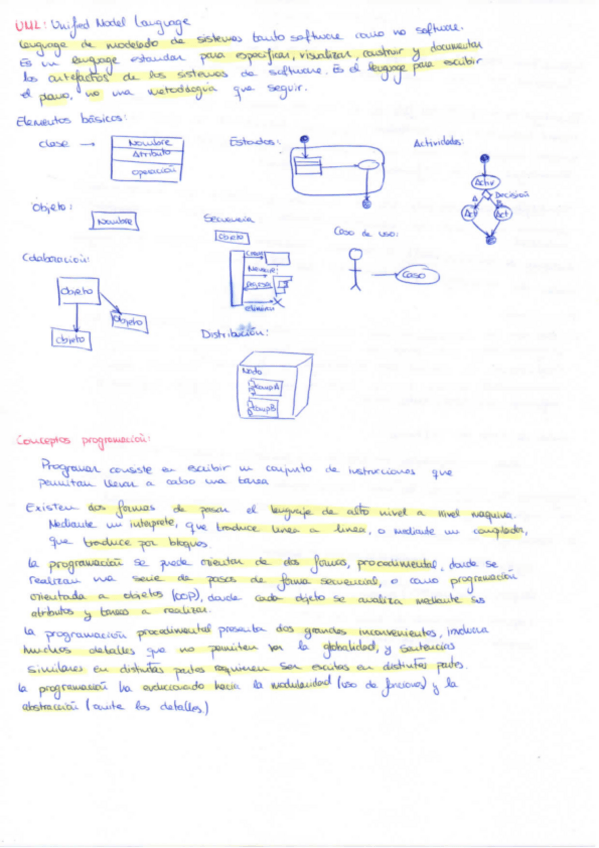 UML: Unified Model Language
Lenguage de modelado de sistemas tanto software como no software.
Es un lenguage estandar para especificar, visualizar, construir y documentar
los artefactos de los sistemas de software. Es el lenguage para escribir
el plano, no una metodología que seguir.
Elementos básicos:
clase → Nombre
Atributo
operación
Estados:
Actividades:
Activ
Decisión
A
B
Act
Act
Objeto:
Nombre
Secuencia
Objeto
Caso de uso:
Caso
Colaboración:
Objeto
Objeto
Objeto
Distribución:
Nodo
CompA
CompB
Conceptos programación:
Programar consiste en escribir un conjunto de instrucciones que
permitan llevar a cabo una tarea
Existen dos formas de pasar el lenguaje de alto nivel a nivel maquina.
Mediante un interprete, que traduce linea a linea, o mediante un compilador,
que traduce por bloques.
La programación se puede orientar de dos formas, procedimental, donde se
realizan una serie de pasos de forma secuencial, o como programación
orientada a objetos (OOP), donde cada objeto se analiza mediante sus
atributos y tareas a realizar.
La programación procedimental presenta dos grandes inconvenientes, involucra
muchos detalles que no permiten ver la globalidad, y sentencias
similares en distintas partes requieren ser escritas en distintas partes.
La programación ha evolucionado hacia la modularidad (uso de funciones) y la
abstracción (omite los detalles)